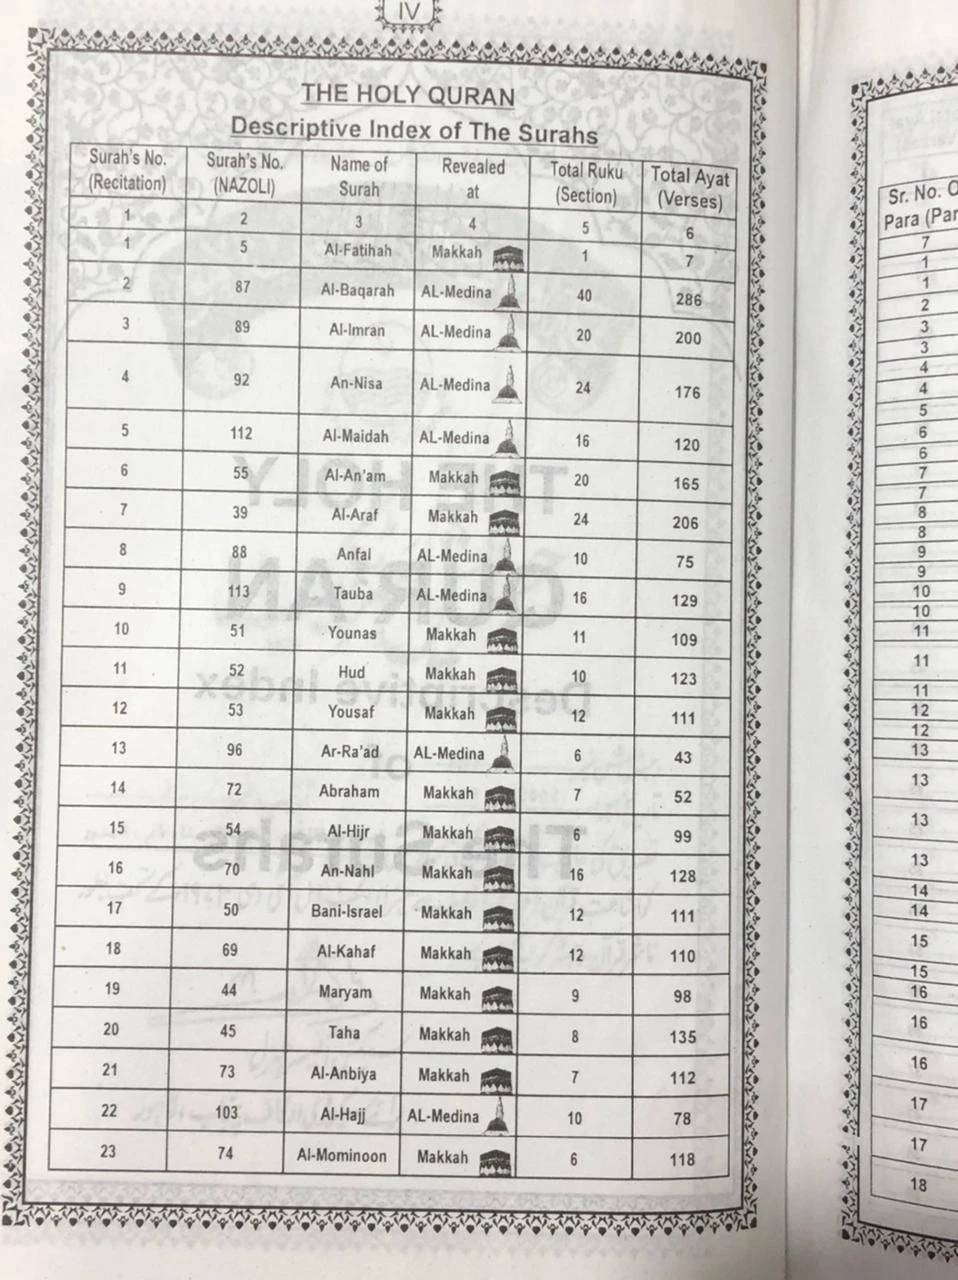 IV
THE HOLY QURAN
Descriptive Index of The Surahs
Surah's No. (Recitation) Surah's No. (NAZOLI) Name of Surah Revealed at Total Ruku (Section) Total Ayat (Verses)
1 2 3 4 5 6
1 5 Al-Fatihah Makkah 1 7
2 87 Al-Baqarah AL-Medina 40 286
3 89 Al-Imran AL-Medina 20 200
4 92 An-Nisa AL-Medina 24 176
5 112 Al-Maidah AL-Medina 16 120
6 55 Al-An'am Makkah 20 165
7 39 Al-Araf Makkah 24 206
8 88 Anfal AL-Medina 10 75
9 113 Tauba AL-Medina 16 129
10 51 Younas Makkah 11 109
11 52 Hud Makkah 10 123
12 53 Yousaf Makkah 12 111
13 96 Ar-Ra'ad AL-Medina 6 43
14 72 Abraham Makkah 7 52
15 54 Al-Hijr Makkah 6 99
16 70 An-Nahl Makkah 16 128
17 50 Bani-Israel Makkah 12 111
18 69 Al-Kahaf Makkah 12 110
19 44 Maryam Makkah 9 98
20 45 Taha Makkah 8 135
21 73 Al-Anbiya Makkah 7 112
22 103 Al-Hajj AL-Medina 10 78
23 74 Al-Mominoon Makkah 6 118
Sr. No.
Para
7
1
1
2
3
3
4
4
5
6
6
7
7
8
8
9
9
10
10
11
11
11
12
12
13
13
13
13
14
14
15
15
16
16
16
17
17
18